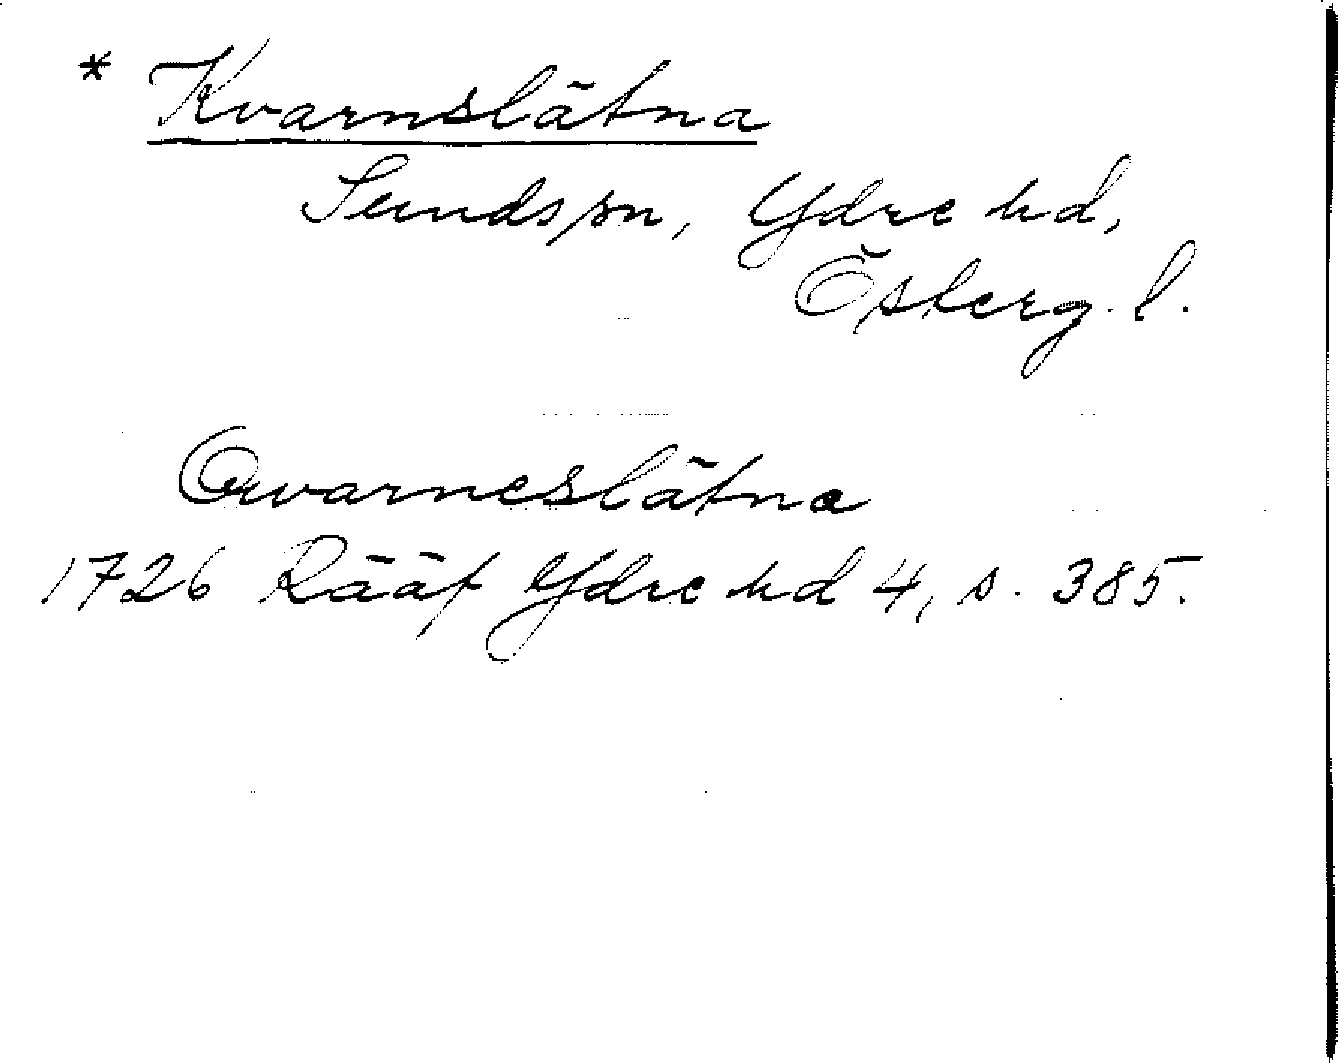 * Kvarnslätna
Sunds sn, Ydre hd,
Österg. l.
Qvarneslätna
1726 Rääf Ydre hd 4, s. 385.